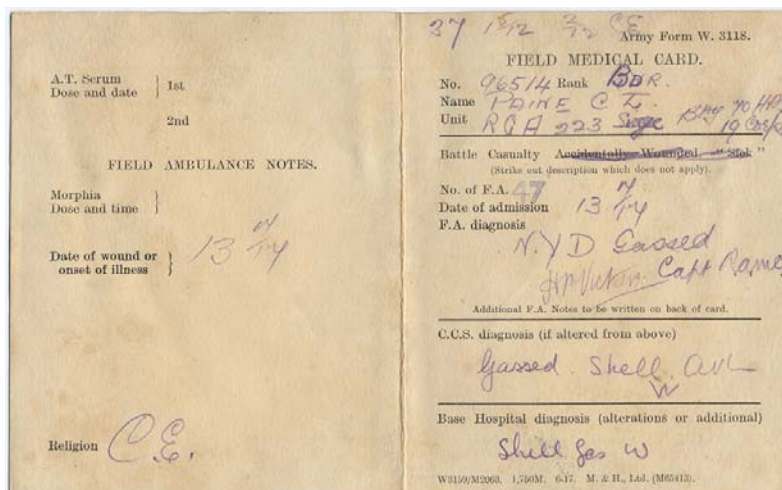 A.T. Serum
Dose and date } 1st
2nd
FIELD AMBULANCE NOTES.
Morphia
Dose and time }
Date of wound or
onset of illness } 13
Religion C.E.
37 C.E
Army Form W. 3118.
FIELD MEDICAL CARD.
No. 96514 Rank BDR.
Name PAINE C
Unit RGA 223 Siege
Battle Casualty Accidentally Wounded. "Sick"
(Strike out description which does not apply).
No. of F.A. 47
Date of admission 13
F.A. diagnosis
N.Y.D Gassed
Capt
Additional F.A. Notes to be written on back of card.
C.C.S. diagnosis (if altered from above)
Gassed. Shell
W
Base Hospital diagnosis (alterations or additional)
Shell Gas W
W3159/M2063. 1,750M. 6-17. M. & H., Ltd. (M65413).